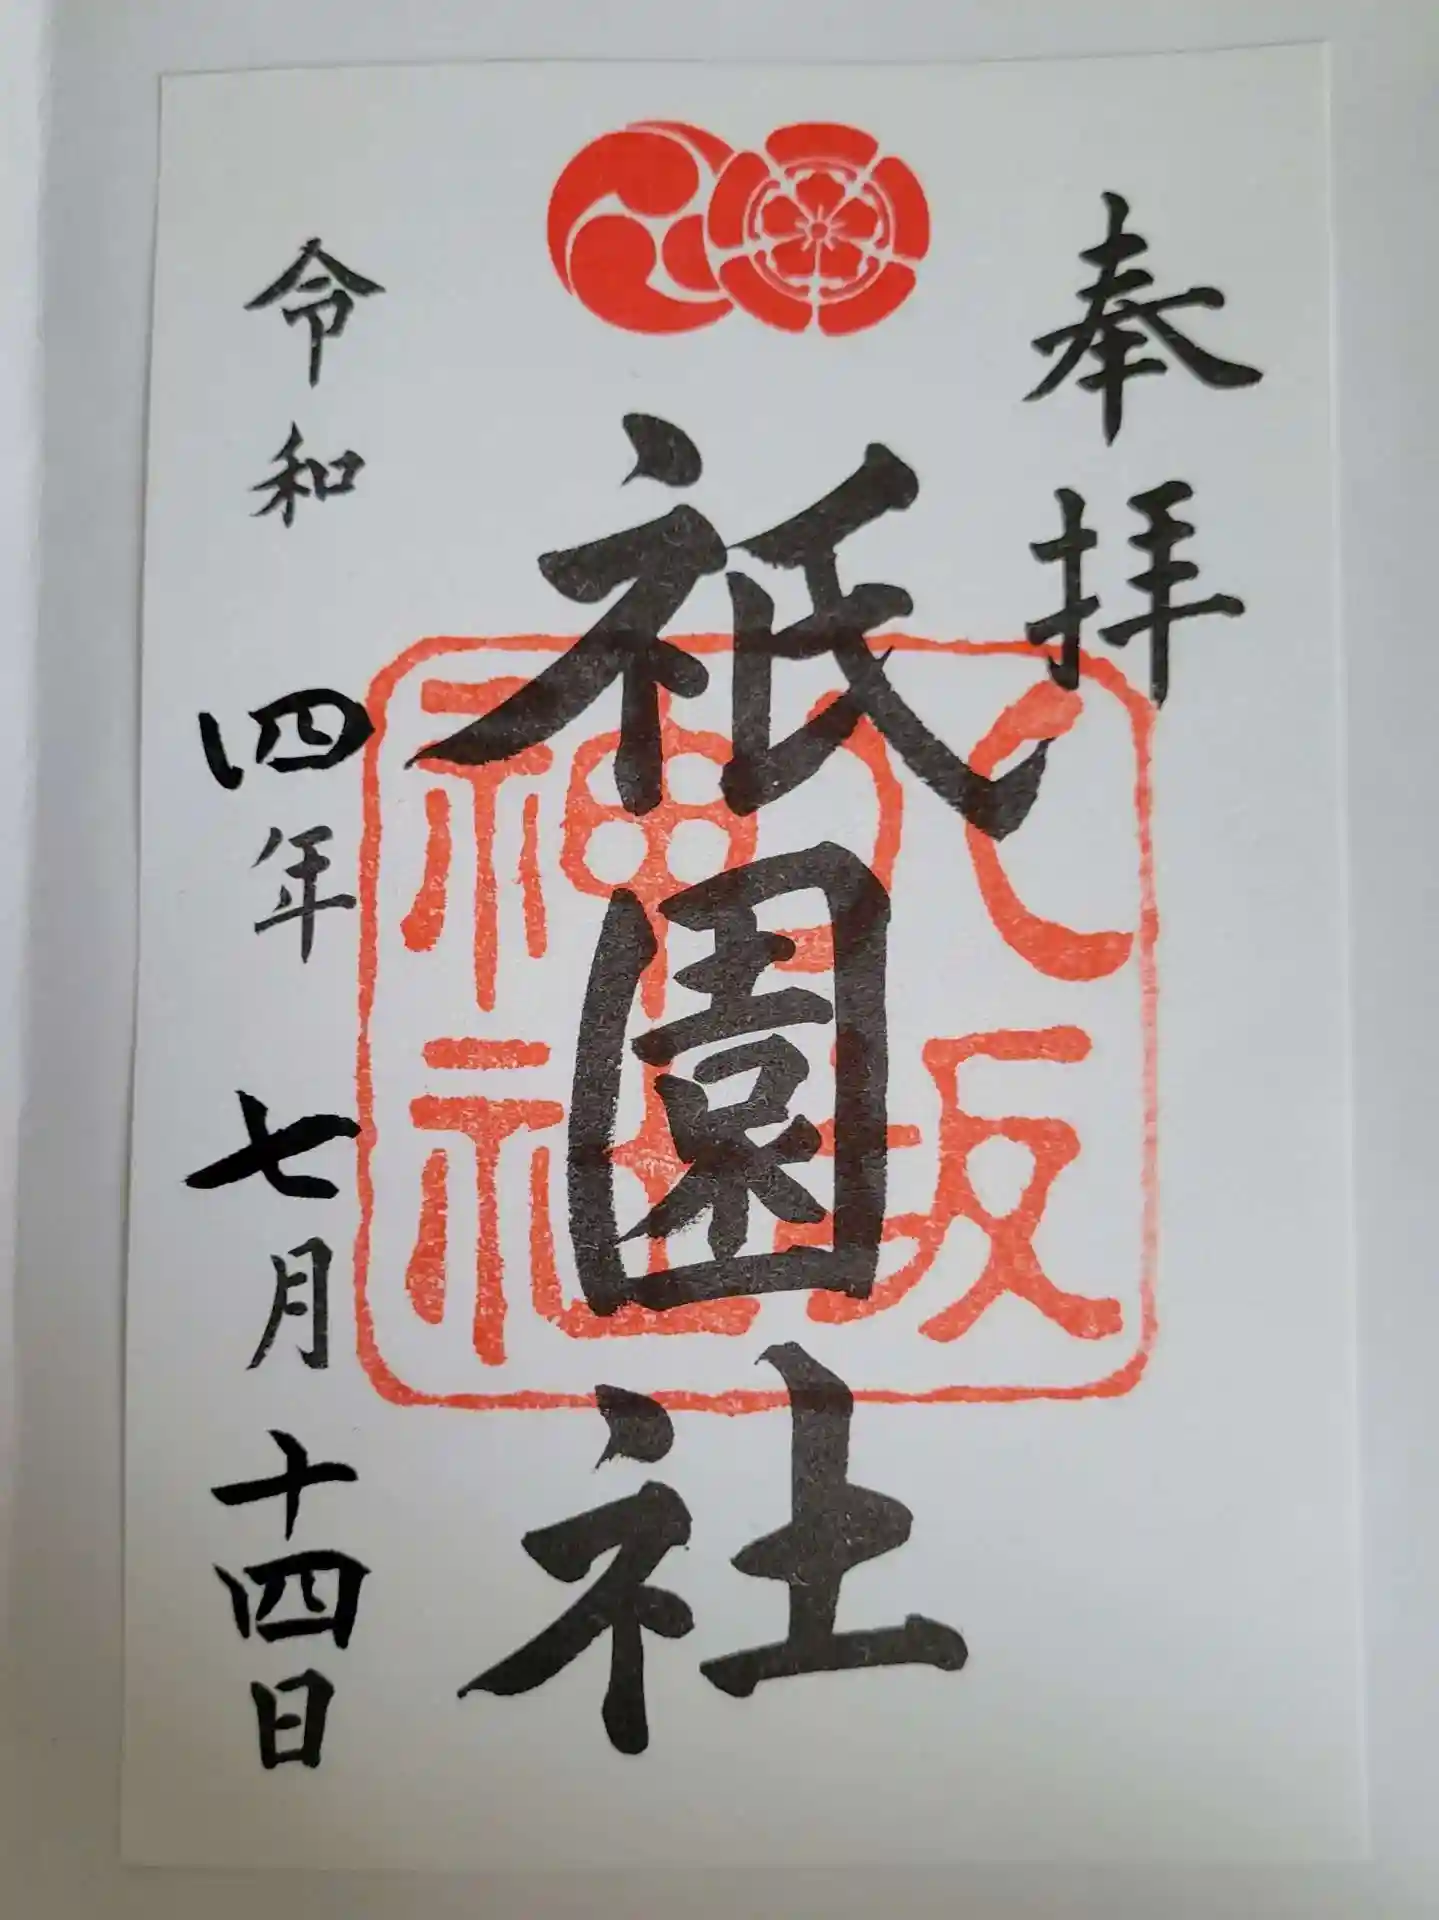 奉拝
祇園社
八坂神社
令和四年七月十四日